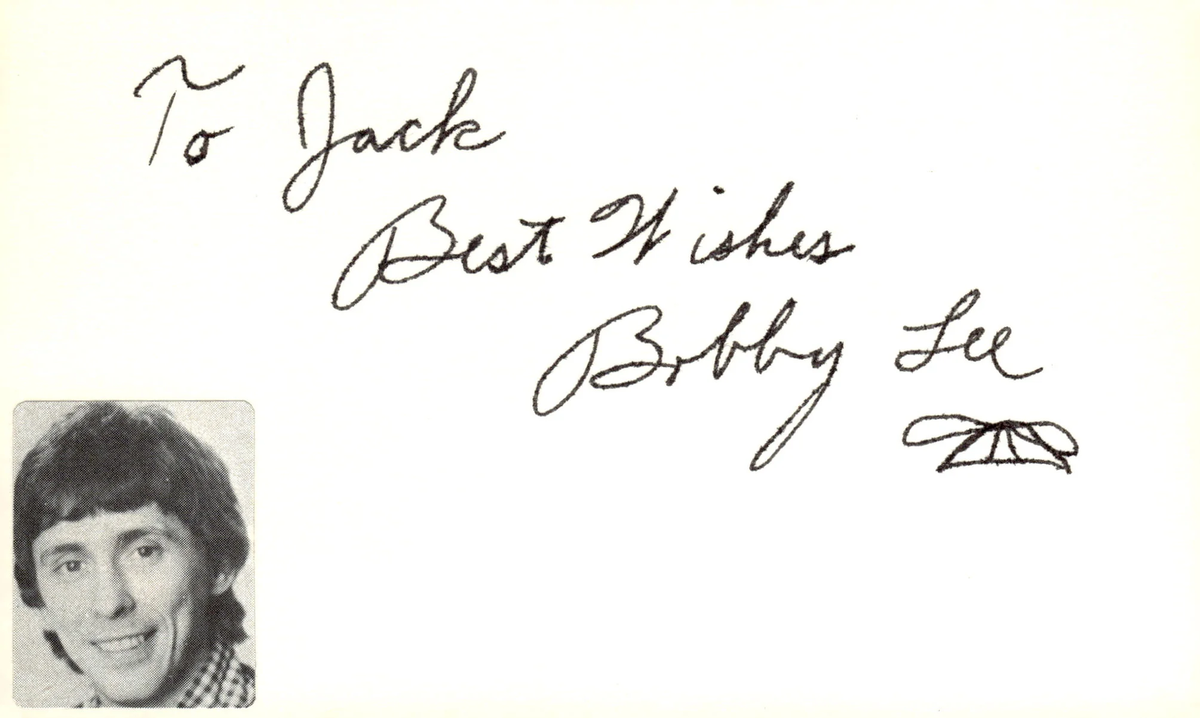 To Jack
Best Wishes
Bobby Lee